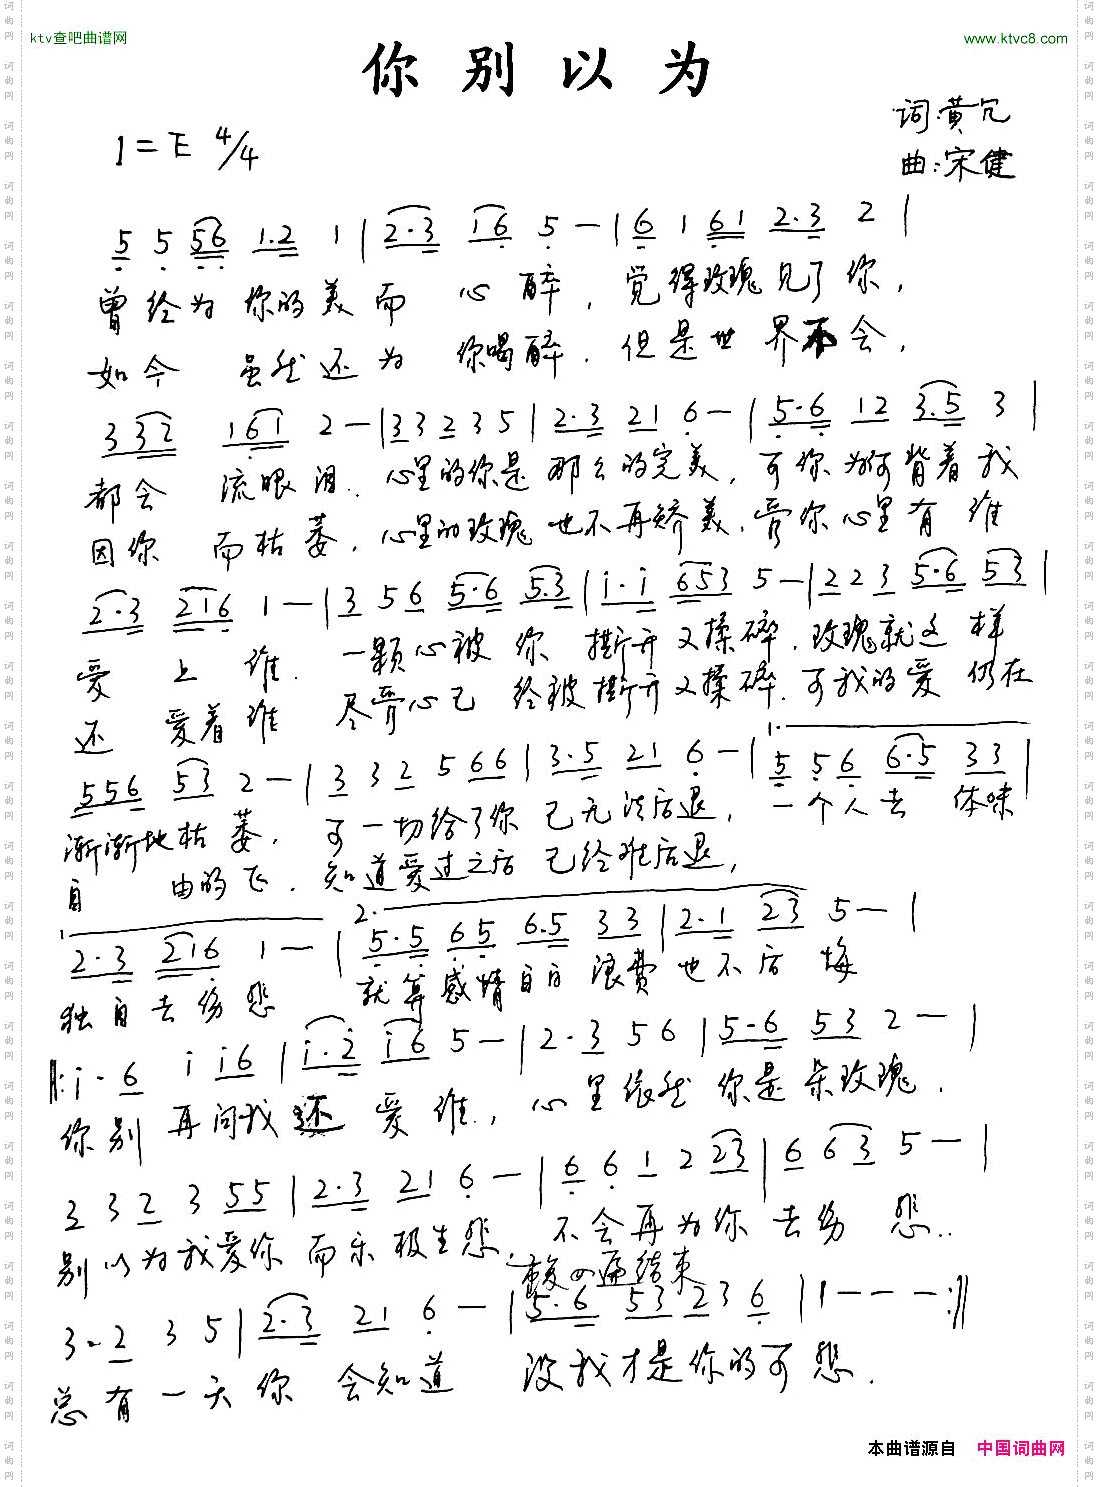 ktv查吧曲谱网
www.ktvc8.com
你别以为
词:黄冗
曲:宋健
1=E 4/4
5 5 56 1·2 1 | 2·3 16 5 — | 6 1 61 2·3 2 |
曾经为你的美而心醉,觉得玫瑰见了你,
如今虽然还为你喝醉.但是世界不会,
3 32 161 2 — | 33 2 3 5 | 2·3 21 6 — | 5·6 12 3·5 3 |
都会流眼泪.心里的你是那么的完美,可你为何背着我
因你而枯萎,心里的玫瑰也不再娇美.管你心里有谁
2·3 216 1 — | 3 5 6 5·6 5·3 | i·i 653 5 — | 2 2 3 5·6 53 |
爱上谁.一颗心被你撕开又揉碎.玫瑰就这样
还爱着谁尽管心已经被撕开又揉碎.可我的爱仍在
1.
556 53 2 — | 3 3 2 5 66 | 3·5 21 6 — | 5 5 6 6·5 33 |
渐渐地枯萎,可一切给了你已无法后退,一个人去体味
自由的飞.知道爱过之后已经难后退,
1 2.
2·3 216 1 — | 5·5 65 6·5 33 | 2·1 23 5 — |
独自去伤悲就算感情白白浪费也不后悔
|: i·6 i i6 | i·2 i6 5 — | 2·3 5 6 | 5·6 53 2 — |
你别再问我还爱谁,心里依然你是朵玫瑰.
3 3 2 3 55 | 2·3 21 6 — | 6 6 1 2 23 | 6 6 3 5 — |
别以为我爱你而乐极生悲.不会再为你去伤悲..
遍结束
3·2 3 5 | 2·3 21 6 — | 5·6 53 2 3 6 | 1 — — — :||
总有一天你会知道没我才是你的可悲.
本曲谱源自 中国词曲网
词曲网